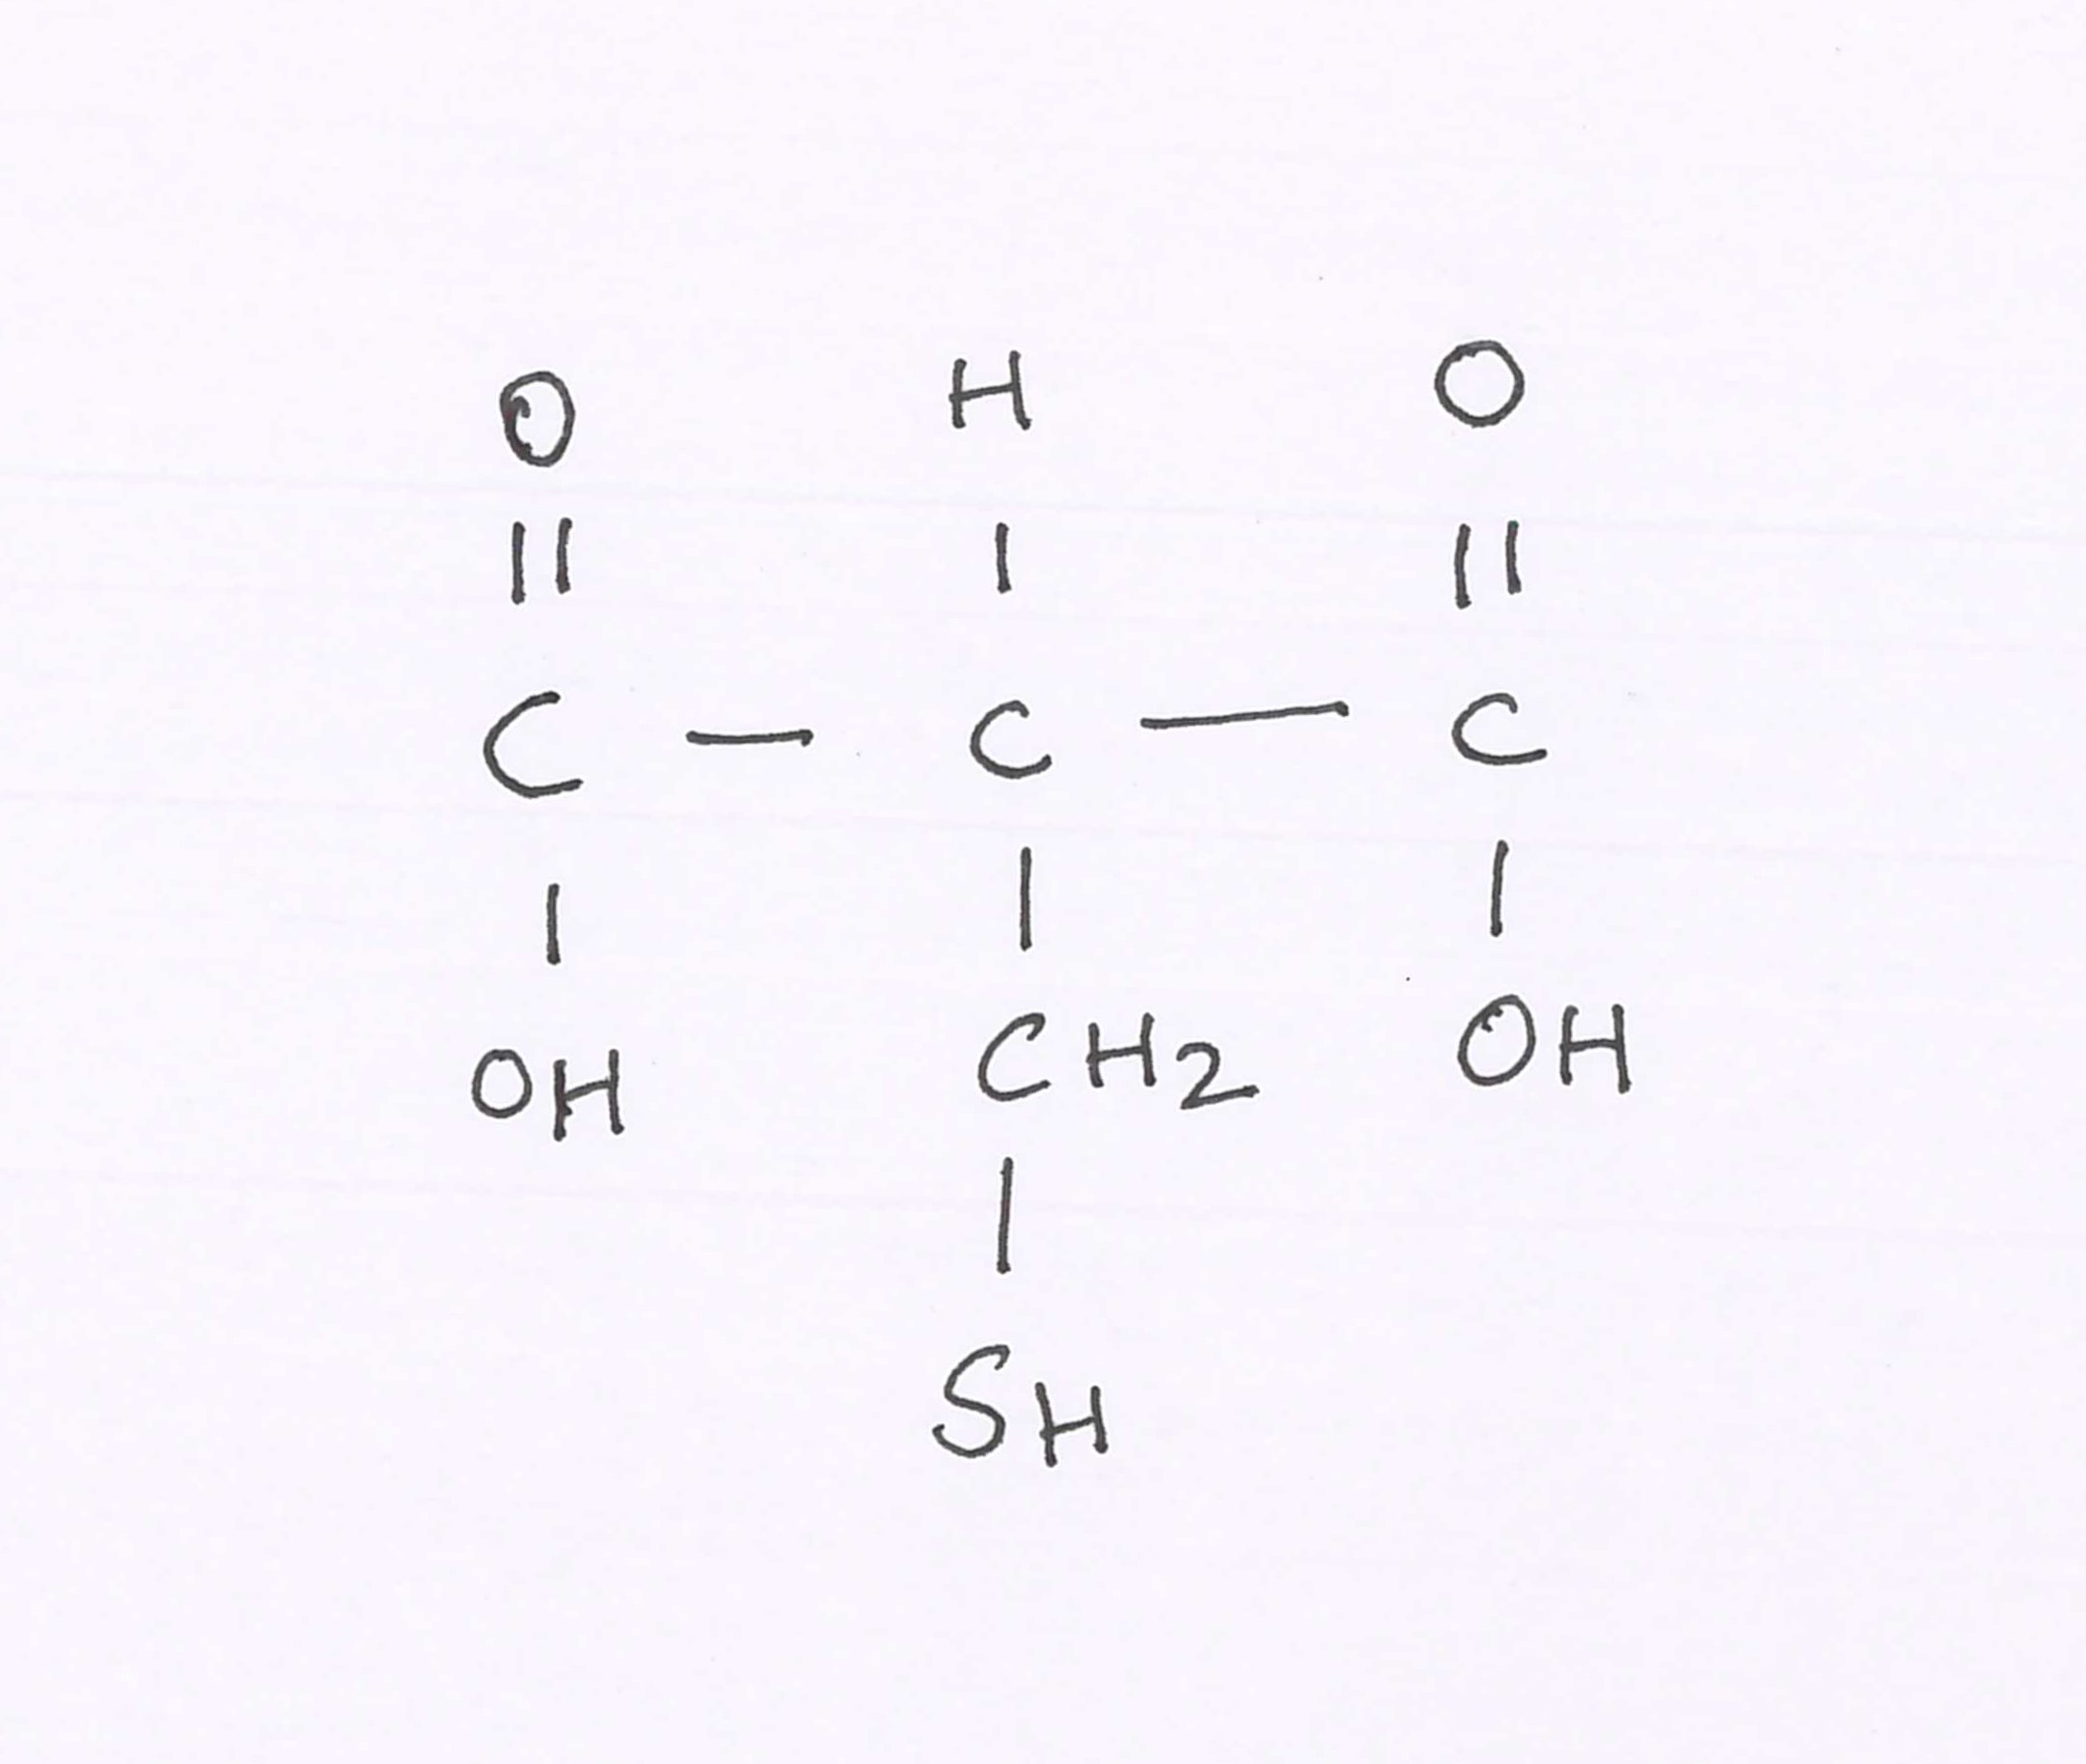 O H O
|| | ||
C — C — C
| | |
OH CH2 OH
|
SH